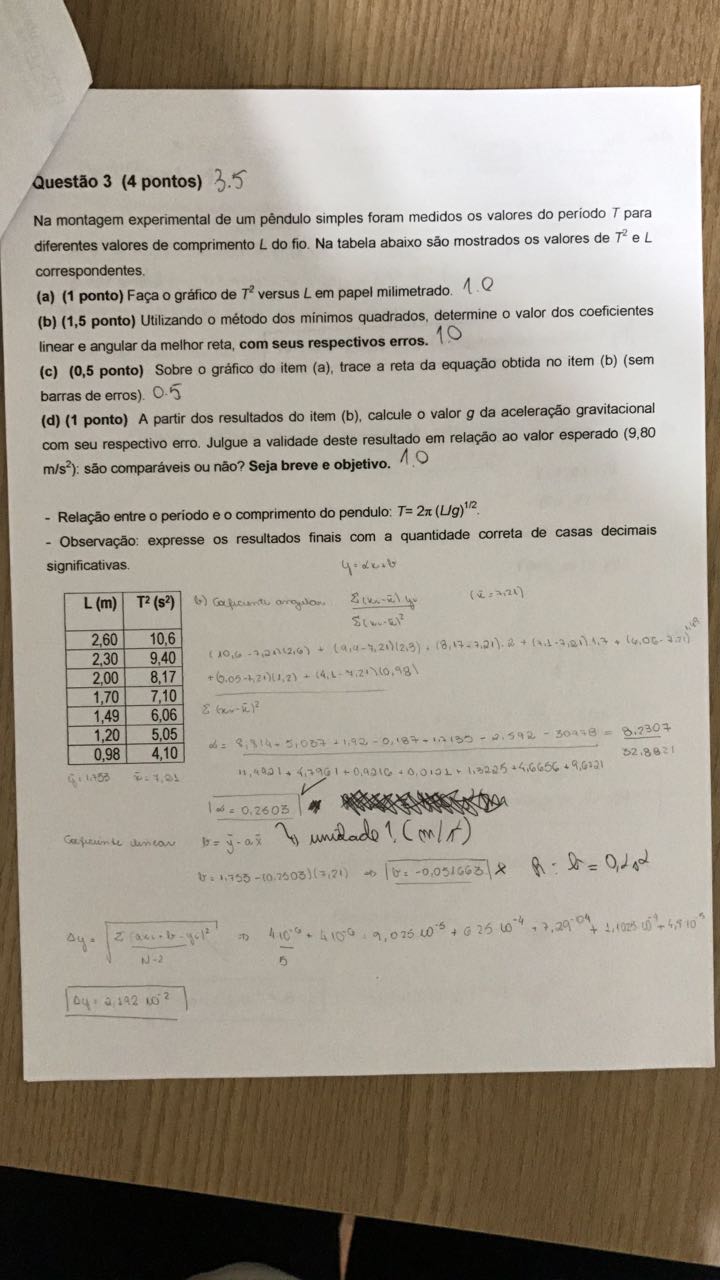 Questão 3 (4 pontos) 3.5
Na montagem experimental de um pêndulo simples foram medidos os valores do período T para
diferentes valores de comprimento L do fio. Na tabela abaixo são mostrados os valores de T² e L
correspondentes.
(a) (1 ponto) Faça o gráfico de T² versus L em papel milimetrado. 1.0
(b) (1,5 ponto) Utilizando o método dos mínimos quadrados, determine o valor dos coeficientes
linear e angular da melhor reta, com seus respectivos erros. 1.0
(c) (0,5 ponto) Sobre o gráfico do item (a), trace a reta da equação obtida no item (b) (sem
barras de erros). 0.5
(d) (1 ponto) A partir dos resultados do item (b), calcule o valor g da aceleração gravitacional
com seu respectivo erro. Julgue a validade deste resultado em relação ao valor esperado (9,80
m/s²): são comparáveis ou não? Seja breve e objetivo. 1.0
- Relação entre o período e o comprimento do pendulo: T= 2π (L/g)^1/2.
- Observação: expresse os resultados finais com a quantidade correta de casas decimais
significativas.
y = αx + b
L (m) T² (s²)
2,60 10,6
2,30 9,40
2,00 8,17
1,70 7,10
1,49 6,06
1,20 5,05
0,98 4,10
ȳ = 1,753 x̄ = 7,21
b) Coeficiente angular Σ(xi - x̄) yi (x̄ = 7,21)
Σ(xi - x̄)²
(10,6 - 7,21)(2,6) + (9,4 - 7,21)(2,3) + (8,17 - 7,21).2 + (7,1 - 7,21).1,7 + (6,06 - 7,21)1,49
+ (5,05 - 7,21)(1,2) + (4,1 - 7,21)(0,98)
Σ(xi - x̄)²
α = 8,814 + 5,037 + 1,92 - 0,187 - 1,7135 - 2,592 - 3,0478 = 8,2307
11,4921 + 4,7961 + 0,9216 + 0,0121 + 1,3225 + 4,6656 + 9,6721 32,8821
α = 0,2503
Coeficiente linear b = ȳ - a x̄ unidade! (m/s²)
b = 1,753 - (0,2503)(7,21) ⇒ b = -0,051663 x R: b =
Δy = √ Σ(axi + b - yi)² ⇒
N-2 5
Δy = 2,192 10^-2